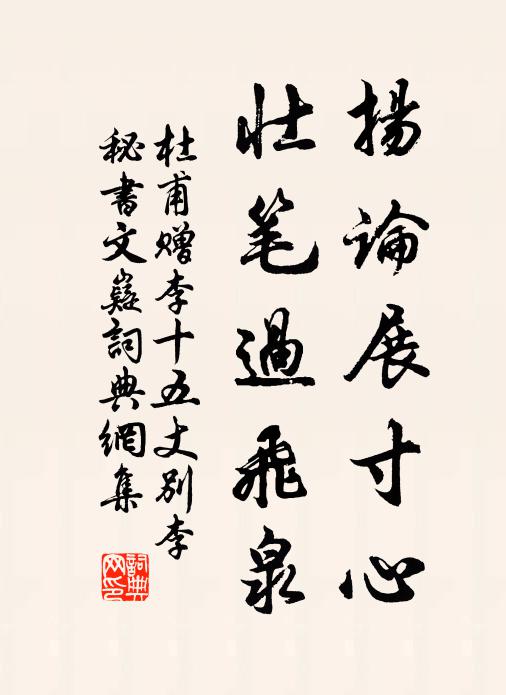 揚論展寸心
壮笔過飛泉
杜甫贈李十五丈別李
秘書文嶷詞典網集
詞典
网印